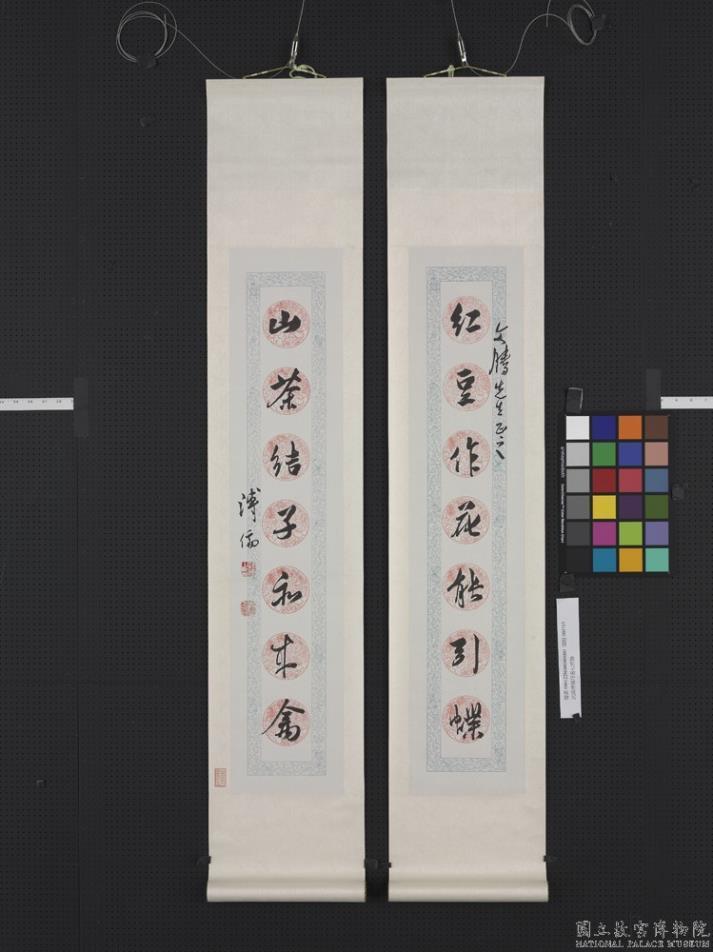 紅豆作花能引蝶
文騰先生正之
山茶結子和來禽
溥儒
國立故宮博物院
NATIONAL PALACE MUSEUM